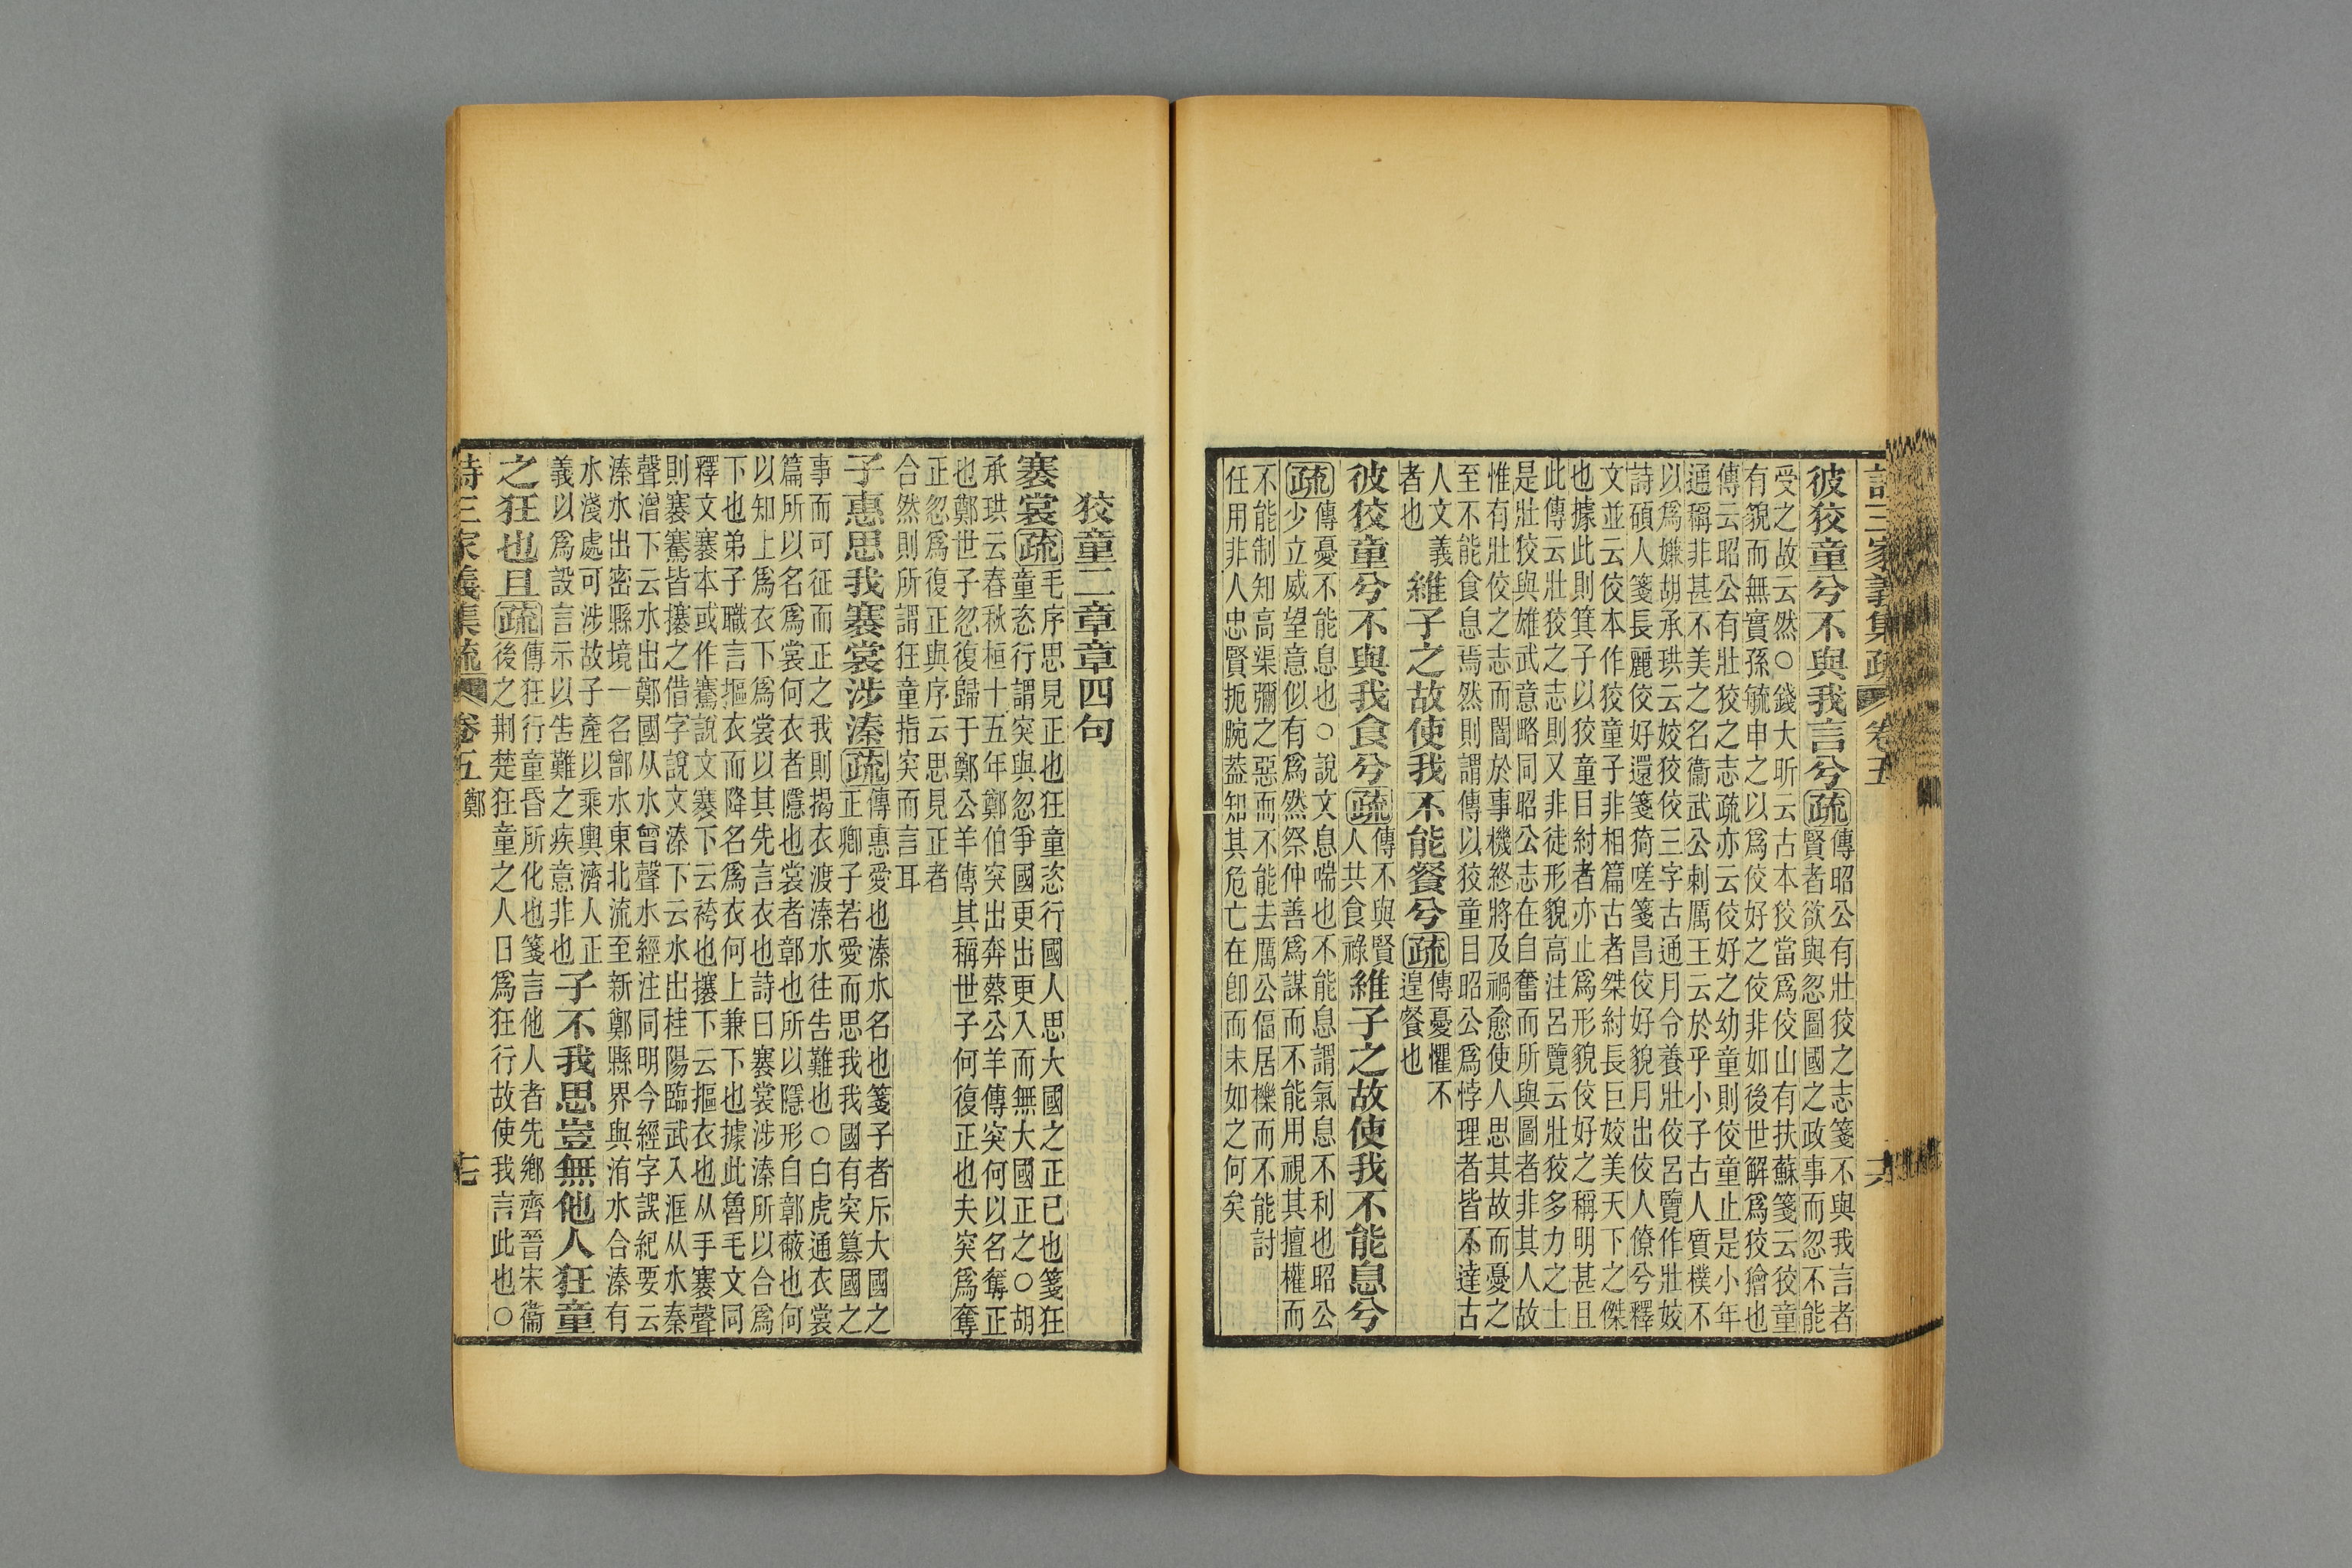 詩三家義集疏 卷五 十六
彼狡童兮不與我言兮疏傳昭公有壯狡之志箋不與我言者
賢者欲與忽圖國之政事而忽不能
受之故云然○錢大昕云古本狡當爲佼山有扶蘇箋云狡童
有貌而無實孫毓申之以爲佼好之佼非如後世解爲狡獪也
傳云昭公有壯狡之志疏亦云佼好之幼童則佼童止是小年
通稱非甚不美之名衞武公刺厲王云於乎小子古人質樸不
以爲嫌胡承珙云姣狡佼三字古通月令養壯佼呂覽作壯姣
詩碩人箋長麗佼好還箋猗嗟箋昌佼好貌月出佼人僚兮釋
文並云佼本作狡童子非相篇古者桀紂長巨姣美天下之傑
也據此則箕子以狡童目紂者亦止爲形貌佼好之稱明甚且
此傳云壯狡之志則又非徒形貌高注呂覽云壯狡多力之士
是壯狡與雄武意略同昭公志在自奮而所與圖者非其人故
惟有壯佼之志而闇於事機終將及禍愈使人思其故而憂之
至不能食息焉然則謂傳以狡童目昭公爲悖理者皆不達古
人文義
者也
維子之故使我不能餐兮疏傳憂懼不
遑餐也
彼狡童兮不與我食兮疏傳不與賢
人共食祿維子之故使我不能息兮
疏傳憂不能息也○說文息喘也不能息謂氣息不利也昭公
少立威望意似有爲然祭仲善爲謀而不能用視其擅權而
不能制知高渠彌之惡而不能去厲公偪居櫟而不能討
任用非人忠賢扼腕葢知其危亡在卽而未如之何矣
狡童二章章四句
褰裳疏毛序思見正也狂童恣行國人思大國之正己也箋狂
童恣行謂突與忽爭國更出更入而無大國正之○胡
承珙云春秋桓十五年鄭伯突出奔蔡公羊傳突何以名奪正
也鄭世子忽復歸于鄭公羊傳其稱世子何復正也夫突爲奪
正忽爲復正與序云思見正者
合然則所謂狂童指突而言耳
子惠思我褰裳涉溱疏傳惠愛也溱水名也箋子者斥大國之
正卿子若愛而思我我國有突篡國之
事而可征而正之我則揭衣渡溱水往告難也○白虎通衣裳
篇所以名爲裳何衣者隱也裳者鄣也所以隱形自鄣蔽也何
以知上爲衣下爲裳以其先言衣也詩曰褰裳涉溱所以合爲
下也弟子職言摳衣而降名爲衣何上兼下也據此魯毛文同
釋文褰本或作騫說文褰下云袴也攐下云摳衣也从手褰聲
則褰騫皆攐之借字說文溱下云水出桂陽臨武入洭从水秦
聲潧下云水出鄭國从水曾聲水經注同明今經字誤紀要云
溱水出密縣境一名鄶水東北流至新鄭縣界與洧水合溱有
水淺處可涉故子產以乘輿濟人正
義以爲設言示以告難之疾意非也子不我思豈無他人狂童
之狂也且疏傳狂行童昏所化也箋言他人者先鄉齊晉宋衞
後之荆楚狂童之人日爲狂行故使我言此也○
詩三家義集疏 卷五 鄭 十七